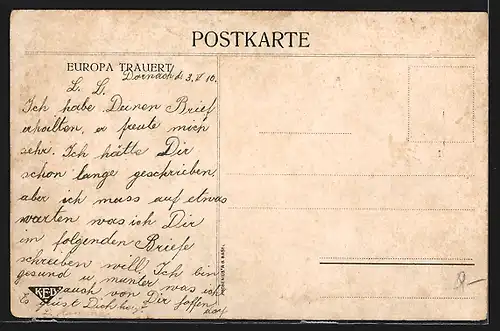 POSTKARTE
EUROPA TRAUERT
Dornach d. 3. V 10.
L. L.
Ich habe Deinen Brief
erhalten, er freute mich
sehr. Ich hätte Dir
schon lange geschrieben,
aber ich muss auf etwas
warten was ich Dir
im folgenden Briefe
schreiben will. Ich bin
gesund u munter was ich
auch von Dir hoffen
darf
Es grüst Dich
K.E.B.
8-